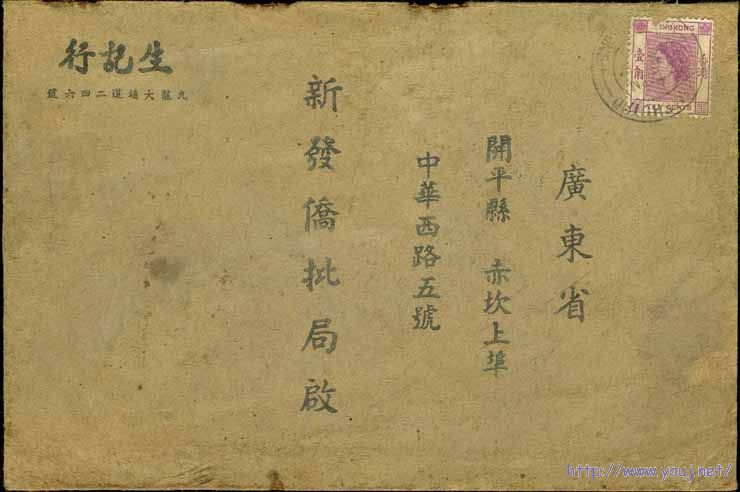 生記行
九龍大埔道二四六號
廣東省
開平縣 赤坎上埠
中華西路五號
新發僑批局啟
HONG KONG
壹角
香港
TEN CENTS
http://www.youj.net/